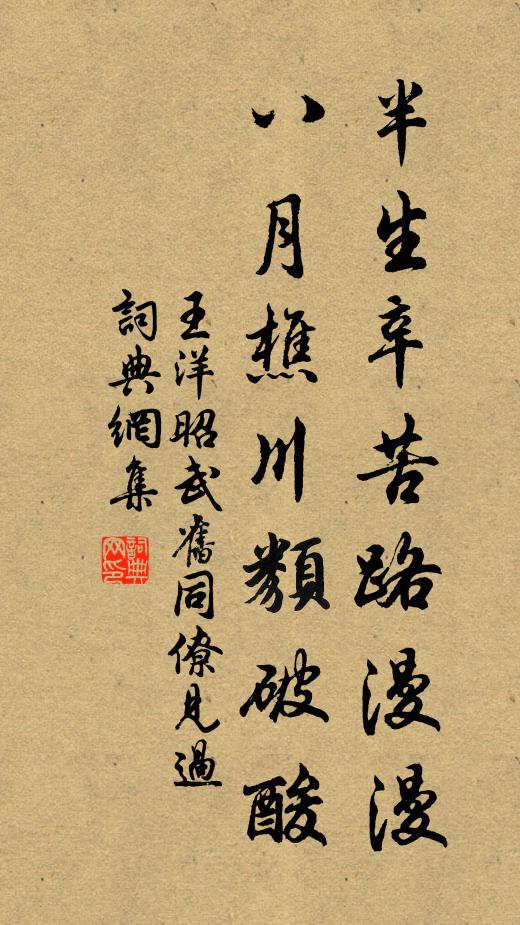 半生辛苦路漫漫
八月樵川類破酸
王洋昭武舊同僚見過
詞典網集
詞典网印